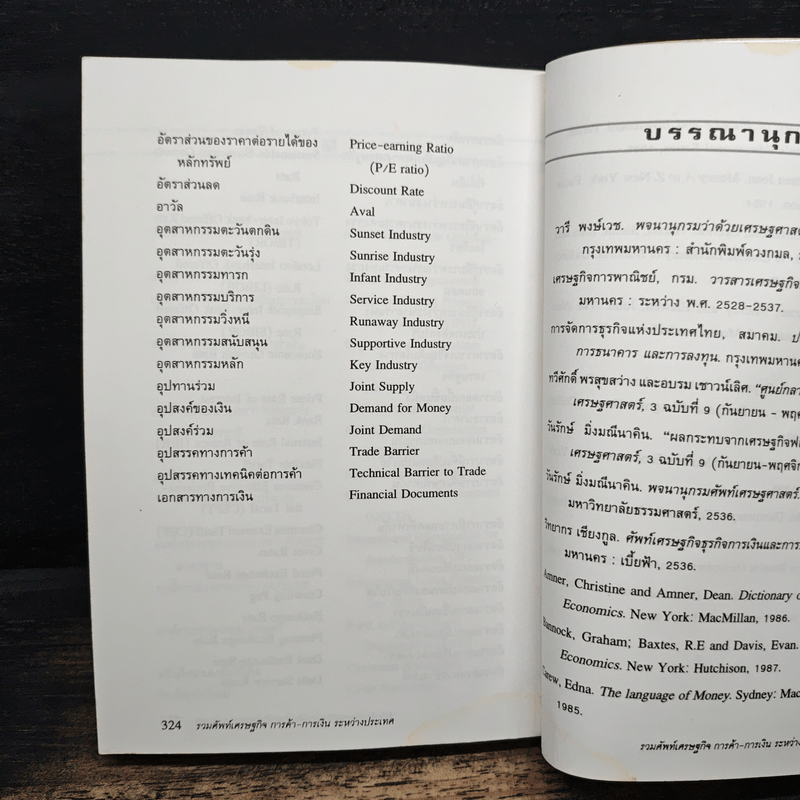 อัตราส่วนของราคาต่อรายได้ของ Price-earning Ratio
หลักทรัพย์ (P/E ratio)
อัตราส่วนลด Discount Rate
อาวัล Aval
อุตสาหกรรมตะวันตกดิน Sunset Industry
อุตสาหกรรมตะวันรุ่ง Sunrise Industry
อุตสาหกรรมทารก Infant Industry
อุตสาหกรรมบริการ Service Industry
อุตสาหกรรมวิ่งหนี Runaway Industry
อุตสาหกรรมสนับสนุน Supportive Industry
อุตสาหกรรมหลัก Key Industry
อุปทานร่วม Joint Supply
อุปสงค์ของเงิน Demand for Money
อุปสงค์ร่วม Joint Demand
อุปสรรคทางการค้า Trade Barrier
อุปสรรคทางเทคนิคต่อการค้า Technical Barrier to Trade
เอกสารทางการเงิน Financial Documents
324 รวมศัพท์เศรษฐกิจ การค้า-การเงิน ระหว่างประเทศ
บรรณานุก
วารี พงษ์เวช. พจนานุกรมว่าด้วยเศรษฐศาสต
กรุงเทพมหานคร : สำนักพิมพ์ดวงกมล,
เศรษฐกิจการพาณิชย์, กรม. วารสารเศรษฐกิจ
มหานคร : ระหว่าง พ.ศ. 2528-2537.
การจัดการธุรกิจแห่งประเทศไทย, สมาคม.
การธนาคาร และการลงทุน. กรุงเทพมหาน
ทวีศักดิ์ พรสุขสว่าง และอบรม เชาวน์เลิศ. “ศูนย์กลา
เศรษฐศาสตร์, 3 ฉบับที่ 9 (กันยายน - พฤศ
วันรักษ์ มิ่งมณีนาคิน. “ผลกระทบจากเศรษฐกิจฟ
เศรษฐศาสตร์, 3 ฉบับที่ 9 (กันยายน-พฤศจิก
วันรักษ์ มิ่งมณีนาคิน. พจนานุกรมศัพท์เศรษฐศาสตร์.
มหาวิทยาลัยธรรมศาสตร์, 2536.
วิทยากร เชียงกูล. ศัพท์เศรษฐกิจธุรกิจการเงินและการ
มหานคร : เบี้ยฟ้า, 2536.
Amner, Christine and Amner, Dean. Dictionary o
Economics. New York: MacMillan, 1986.
Bannock, Graham; Baxtes, R.E and Davis, Evan.
Economics. New York: Hutchison, 1987.
Carew, Edna. The language of Money. Sydney: Mac
1985.
รวมศัพท์เศรษฐกิจ การค้า-การเงิน ระหว่าง